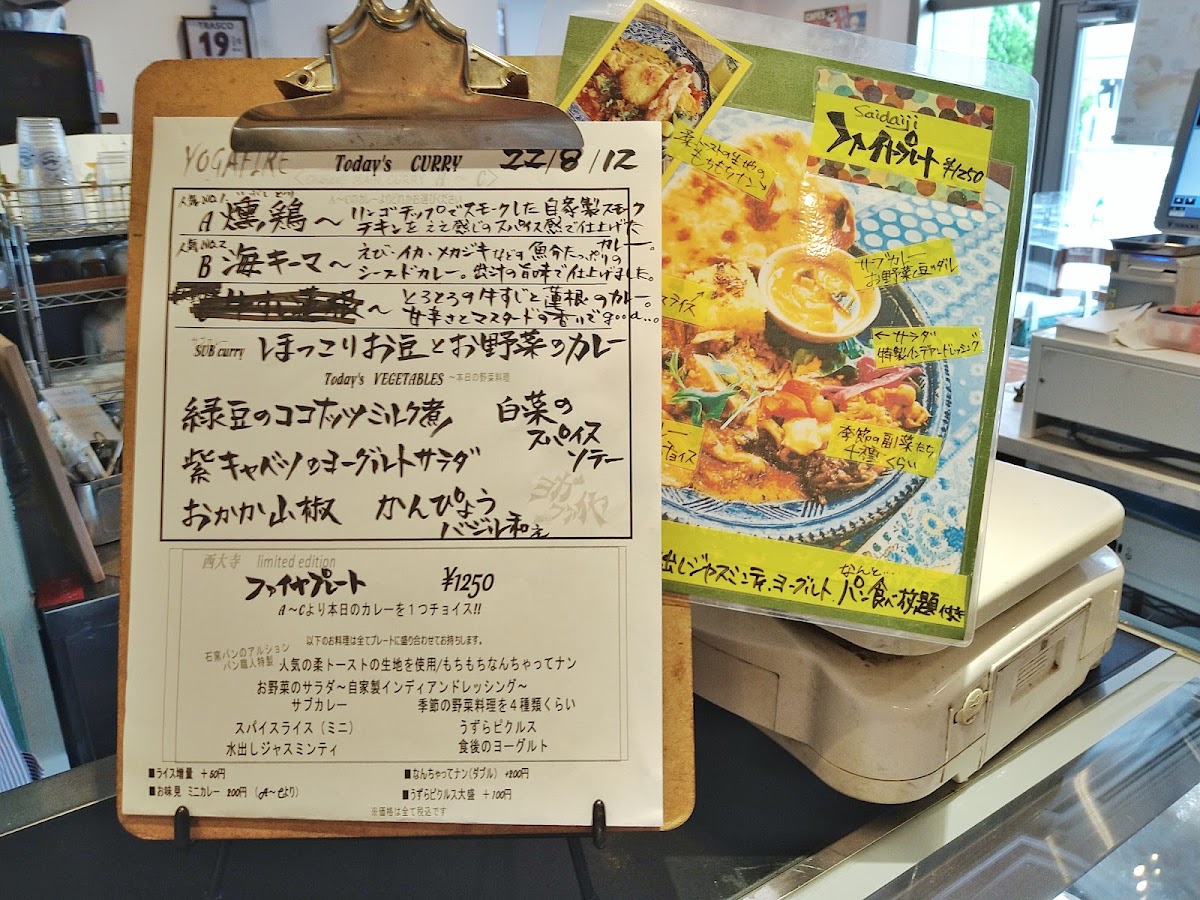 TRASCO
19
YOGAFIRE Today's CURRY 22/8/12
人気NO.1
A 燻鶏～ リンゴチップでスモークした自家製スモーク
チキンをええ感じのスパイス感で仕上げたカレー。
人気NO.2
B 海キーマ～ えび・イカ・メカジキなど魚介たっぷりの
シーフードカレー。出汁の旨味で仕上げました。
～ とろとろの牛すじと蓮根のカレー。
甘辛さとマスタードの香りでgood..。
SUB curry ほっこりお豆とお野菜のカレー
Today's VEGETABLES ～本日の野菜料理
緑豆のココナッツミルク煮 白菜の
スパイス
ソテー
紫キャベツのヨーグルトサラダ
おかか山椒 かんぴょう
バジル和え
西大寺 limited edition
ファイヤプレート ¥1250
A～Cより本日のカレーを1つチョイス!!
以下のお料理は全てプレートに盛り合わせてお持ちします。
石窯パンのアルション
パン職人特製 人気の柔トーストの生地を使用/もちもちなんちゃってナン
お野菜のサラダ～自家製インディアンドレッシング～
サブカレー 季節の野菜料理を４種類くらい
スパイスライス（ミニ） うずらピクルス
水出しジャスミンティ 食後のヨーグルト
■ライス増量 +50円 ■なんちゃってナン(ダブル) +200円
■お味見 ミニカレー 200円 (A～Cより) ■うずらピクルス大盛 +100円
※価格は全て税込です
Saidaiji
ファイトプレート ¥1250
柔トーストの生地の
もちもちナン
サーブカレー
お野菜と豆のダル
ライス
←サラダ
特製インデアンドレッシング
季節の副菜たち
4種くらい
カレー
チョイス
出しジャスミンティ、ヨーグルト
なんと…
パン食べ放題付き